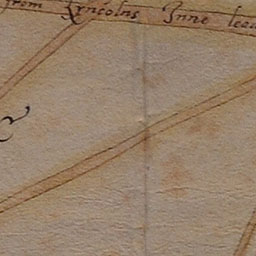 from Lyncolns Inne